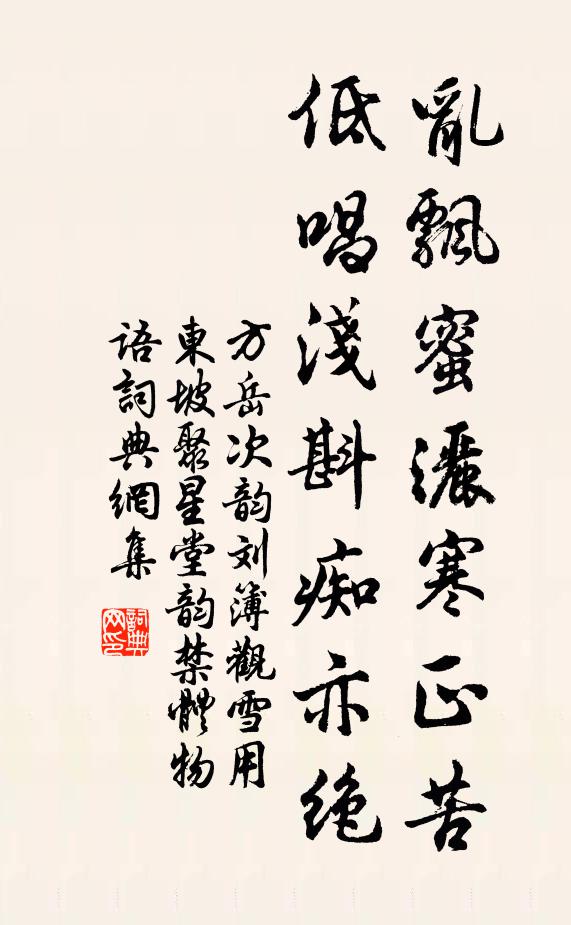 亂飄蜜灑寒正苦
低唱淺斟痴亦絶
方岳次韵刘簿觀雪用
東坡聚星堂韵禁體物
語詞典網集
詞典
网印